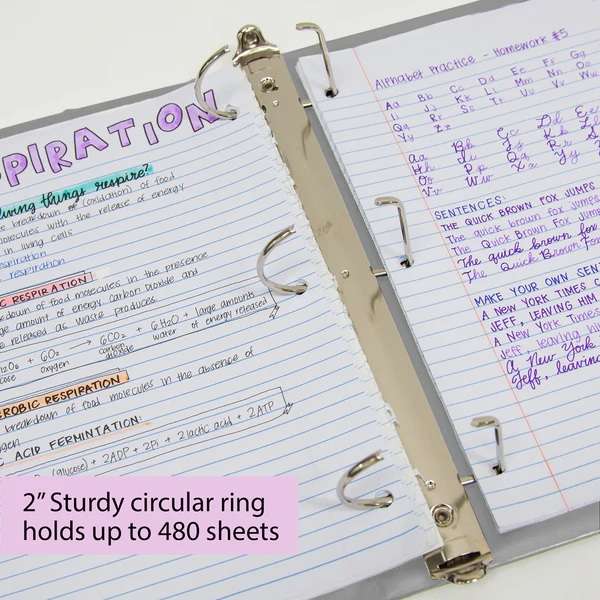 PIRATION
living things respire?
breakdown of (oxidation) of food
molecules with the release of energy
in living cells
respiration
respiration
C RESPIRATION
down of food molecules in the presence
large amount of energy. Carbon Dioxide and
released as waste produces.
+ 6O₂ → 6CO₂ + 6H₂O + large amounts
oxygen carbon dioxide water of energy released
EROBIC RESPIRATION
breakdown of food molecules in the absence of
ACID FERMINTATION:
(glucose) + 2ADP + 2Pi → 2 lactic acid + 2ATP
Alphabet Practice - Homework #5
Aa Bb Cc Dd Ee Ff Gg
Ii Jj Kk Ll Mm Nn Oo
Qq Rr Ss Tt Uu Vv Ww
Yy Zz
Aa Bb Cc Dd Ee
Hh Ii Jj Kk Ll
Oo Pp Qq Rr Ss
Vv Ww Xx Yy Zz
SENTENCES:
THE QUICK BROWN FOX JUMPS
The quick brown fox jumps
The Quick Brown Fox Jumps
The quick brown fox
The Quick Brown Fox
MAKE YOUR OWN SENT
A NEW YORK TIMES C
JEFF, LEAVING HIM
A New York Times
Jeff, leaving him
A New York
Jeff, leaving
2” Sturdy circular ring
holds up to 480 sheets